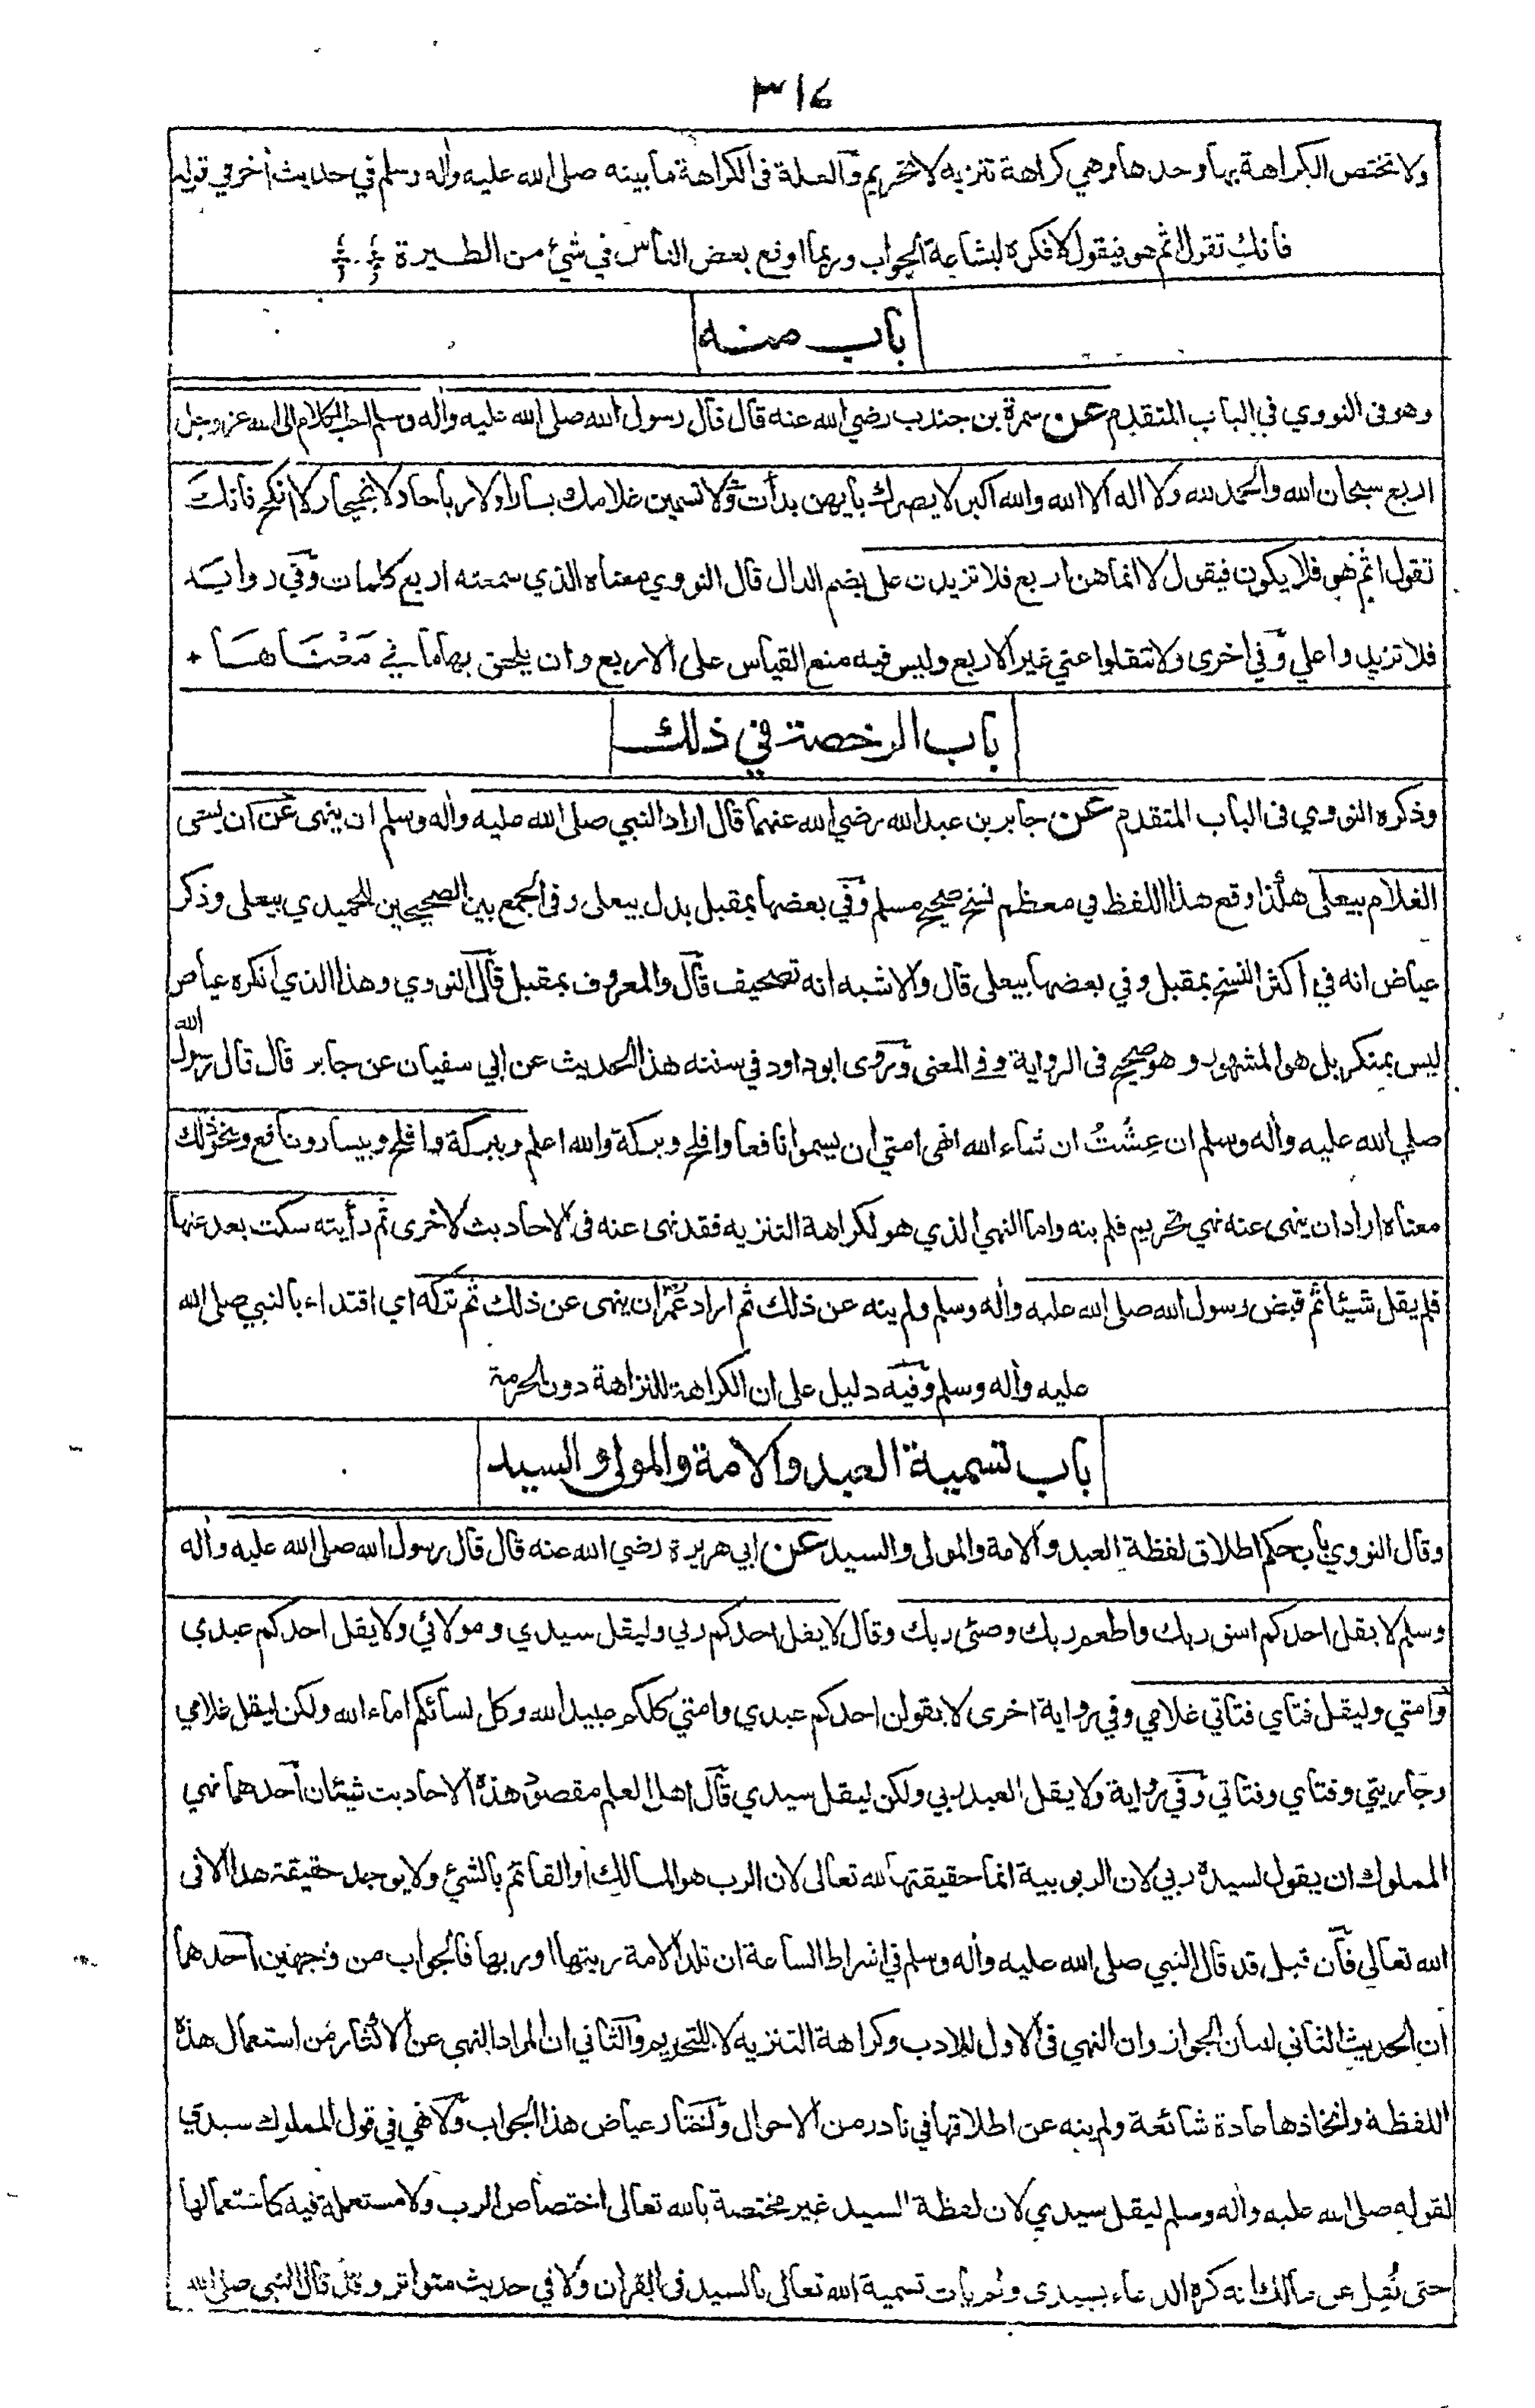 ٣١٤
ولا تختص الكراهة بها وحدها وهي كراهة تنزيه لا تحريم والعلة في الكراهة ما بينه صلى الله عليه واله وسلم في حديث أخر في قوله
فانك تقول اثم هو فيقول لا فكره لبشاعة الجواب وربما اوقع بعض الناس في شئ من الطيرة
باب منه
وهو في النووي في الباب المتقدم عن سمرة بن جندب رضي الله عنه قال قال رسول الله صلى الله عليه واله وسلم احب الكلام الى الله عز وجل
اربع سبحان الله والحمد لله ولا اله الا الله والله اكبر لا يضرك بأيهن بدأت ولا تسمين غلامك يسارا ولا رباحا ولا نجيحا ولا افلح فانك
تقول اثم هو فلا يكون فيقول لا انما هن اربع فلا تزيدن علي بضم الدال قال النووي معناه الذي سمعته اربع كلمات وفي رواية
فلا تزيدوا علي وفي اخرى ولا تنقلوا عني غير الاربع وليس فيه منع القياس على الاربع وان يلحق بها ما في معناها
باب الرخصة في ذلك
وذكره النووي في الباب المتقدم عن جابر بن عبد الله رضي الله عنهما قال اراد النبي صلى الله عليه واله وسلم ان ينهى عن ان يسمى
الغلام بيعلى هكذا وقع هذا اللفظ في معظم نسخ صحيح مسلم وفي بعضها بمقبل بدل بيعلى وفي الجمع بين الصحيحين للحميدي بيعلى وذكر
عياض انه في اكثر النسخ بمقبل وفي بعضها بيعلى قال والاشبه انه تصحيف قال والمعروف بمقبل قال النووي وهذا الذي انكره عياض
ليس بمنكر بل هو المشهور وهو صحيح في الرواية وفي المعنى وروى ابو داود في سننه هذا الحديث عن ابي سفيان عن جابر قال قال رسول الله
صلى الله عليه واله وسلم ان عِشْتُ ان شاء الله انهى امتي ان يسموا نافعا وافلح وبركة والله اعلم وببركة وافلح وبيسار ونافع ونحو ذلك
معناه اراد ان ينهى عنه نهي تحريم فلم ينه واما النهي الذي هو لكراهة التنزيه فقد نهى عنه في الاحاديث الاخرى ثم رأيته سكت بعد عنها
فلم يقل شيئا ثم قبض رسول الله صلى الله عليه واله وسلم ولم ينه عن ذلك ثم اراد عمر ان ينهى عن ذلك ثم تركه اي اقتداء بالنبي صلى الله
عليه واله وسلم وفيه دليل على ان الكراهة للنزاهة دون الحرمة
باب تسمية العبد والامة والمولى والسيد
وقال النووي باب حكم اطلاق لفظة العبد والامة والمولى والسيد عن ابي هريرة رضي الله عنه قال قال رسول الله صلى الله عليه واله
وسلم لا يقل احدكم اسق ربك واطعم ربك وضئ ربك وقال لا يقل احدكم ربي وليقل سيدي ومولائي ولا يقل احدكم عبدي
وامتي وليقل فتاي فتاتي غلامي وفي رواية اخرى لا يقولن احدكم عبدي وامتي كلكم عبيد الله وكل نسائكم اماء الله ولكن ليقل غلامي
وجاريتي وفتاي وفتاتي وفي رواية ولا يقل العبد ربي ولكن ليقل سيدي قال اهل العلم مقصود هذه الاحاديث شيئان احدهما نهي
المملوك ان يقول لسيده ربي لان الربوبية انما حقيقتها لله تعالى لان الرب هو المالك او القائم بالشئ ولا يوجد حقيقة هذا الا في
الله تعالى فان قيل قد قال النبي صلى الله عليه واله وسلم في اشراط الساعة ان تلد الامة ربتها او ربها فالجواب من وجهين احدهما
ان الحديث الثاني لبيان الجواز وان النهي في الاول للادب وكراهة التنزيه لا للتحريم والثاني ان المراد النهي عن الاكثار من استعمال هذه
اللفظة واتخاذها عادة شائعة ولم ينه عن اطلاقها في نادر من الاحوال واختار عياض هذا الجواب ولا نهي في قول المملوك سيدي
لقوله صلى الله عليه واله وسلم ليقل سيدي لان لفظة السيد غير مختصة بالله تعالى اختصاص الرب ولا مستعملة فيه كاستعمالها
حتى نقل عن مالك انه كره الدعاء بسيدي ولم يأت تسمية الله تعالى بالسيد في القران ولا في حديث متواتر وقد قال النبي صلى الله